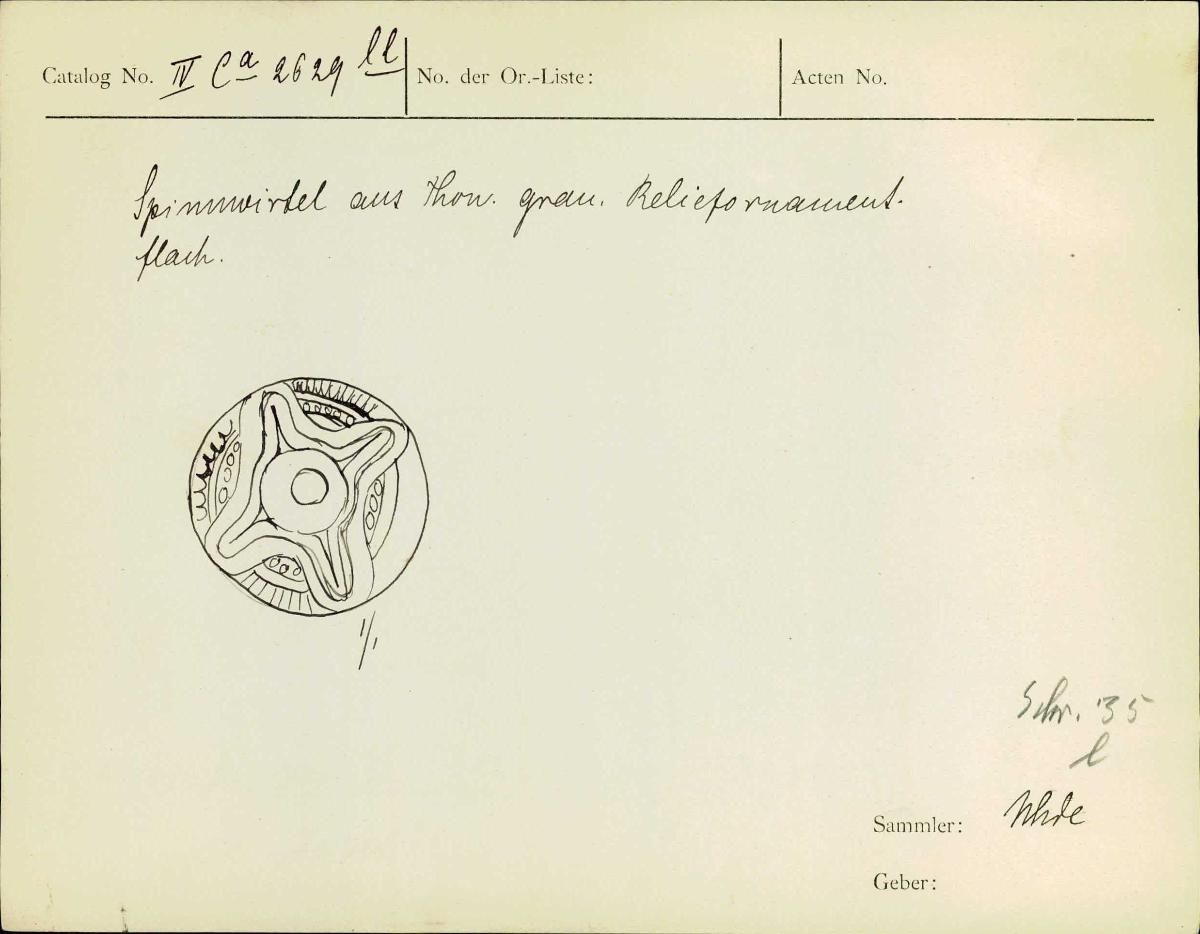 Catalog No. IV Ca 2629 ll No. der Or.-Liste: Acten No.
Spinnwirtel aus Thon. grau. Reliefornament.
flach.
1/1
Schr. 35
l
Sammler: Uhde
Geber: